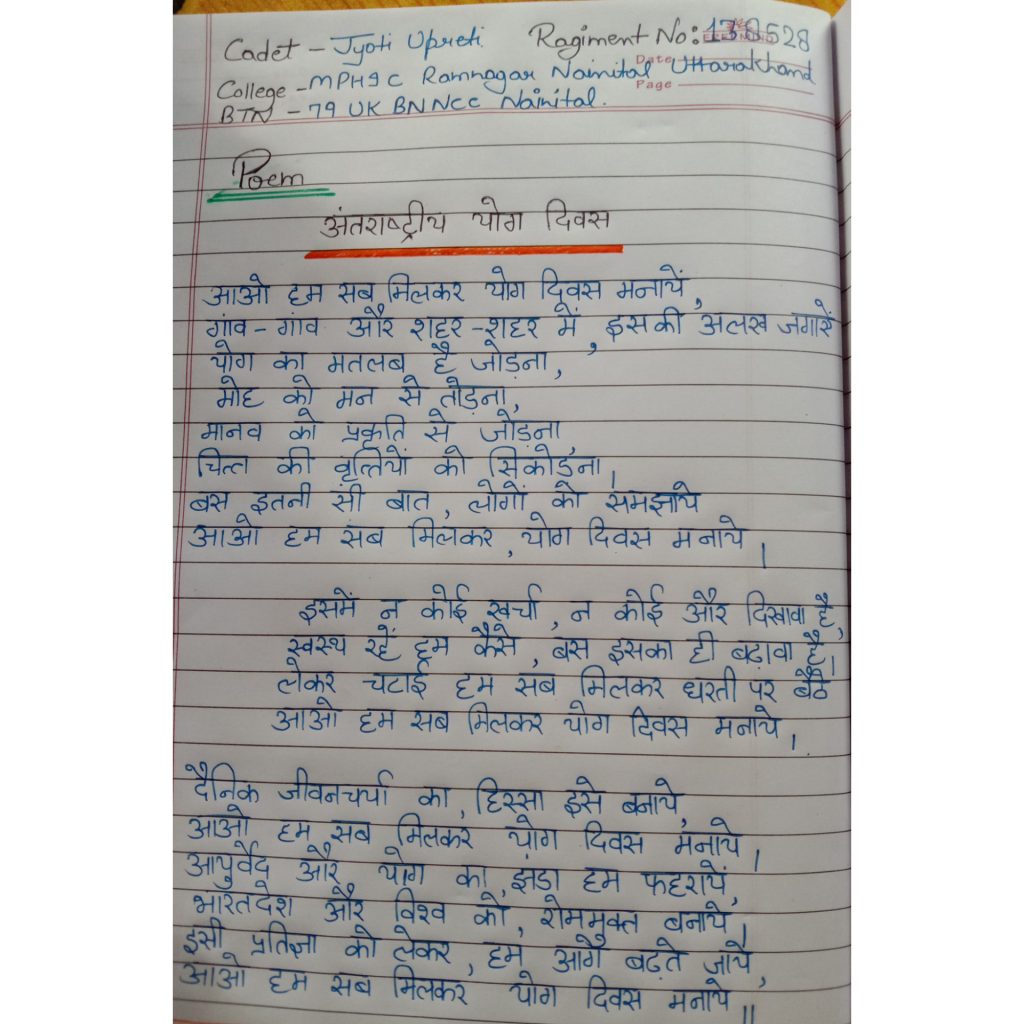 Cadet - Jyoti Upreti Ragiment No: 528
Date
College - MPHGC Ramnagar Nainital Uttarakhand
Page
BTN - 79 UK BN NCC Nainital.
Poem
अंतराष्ट्रीय योग दिवस
आओ हम सब मिलकर योग दिवस मनायें,
गांव - गांव और शहर - शहर में, इसकी अलख जगायें
योग का मतलब है जोड़ना,
मोह को मन से तोड़ना,
मानव को प्रकृति से जोड़ना,
चित्त की वृत्तियों को सिकोड़ना,
बस इतनी सी बात, लोगों को समझाये
आओ हम सब मिलकर, योग दिवस मनाये।
इसमें न कोई खर्चा, न कोई और दिखावा है,
स्वस्थ रहें हम कैसे, बस इसका ही बढ़ावा है।
लेकर चटाई हम सब मिलकर धरती पर बैठे
आओ हम सब मिलकर योग दिवस मनाये।
दैनिक जीवनचर्या का, हिस्सा इसे बनाये,
आओ हम सब मिलकर योग दिवस मनाये।
आयुर्वेद और योग का, झंडा हम फहरायें,
भारतदेश और विश्व को, रोममुक्त बनाये।
इसी प्रतिज्ञा को लेकर, हम आगे बढ़ते जाये,
आओ हम सब मिलकर योग दिवस मनाये॥